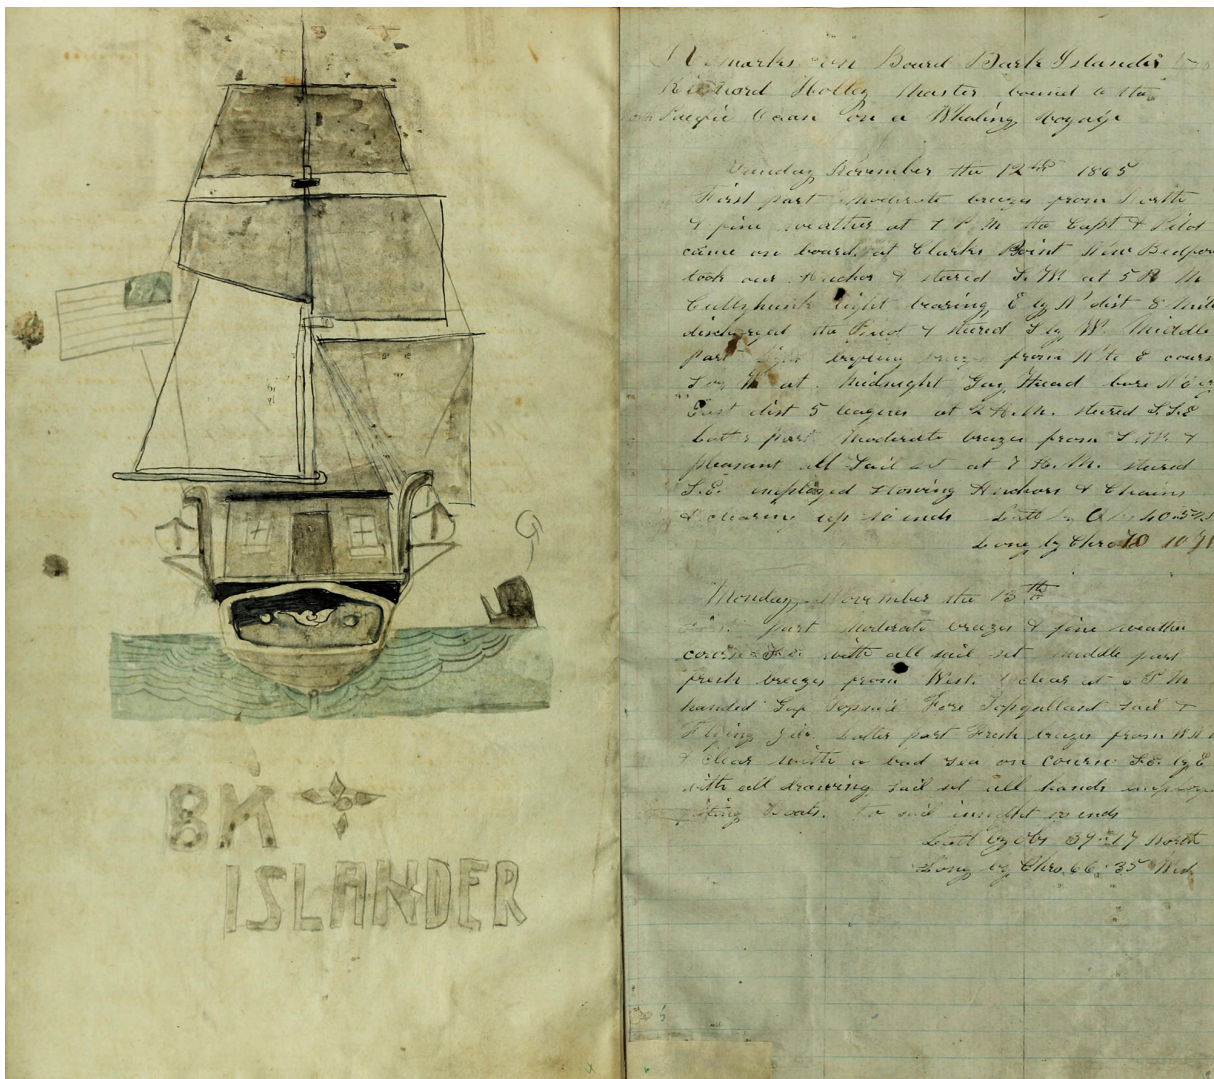 BK
ISLANDER
Remarks on Board Bark Islander
Richard Holley Master bound to the
Pacific Ocean on a Whaling voyage
Sunday November the 12th 1865
First part moderate breezes from North
& fine weather at 1 P.M the Capt & Pilot
came on board at Clarks Point New Bedfor
took our Anchor & stared S.W. at 5 P. M
Cuttyhunk light bearing E by N dist 8 Mile
discharged the & stared S by W. Middle
part light from N to E cours
S by W at Midnight Gay Head bore N E
East dist 5 leagues at 2 A.M. stared S.S.E
latter part Moderate breezes from S.W. &
pleasant all Sail set at 7 A.M. stared
S.E. employed stowing Anchors & Chains
& clearing up so ends Latt by
Long by Chro 70
Monday November the 13th
First part moderate breezes & fine weather
course S.E. with all sail set middle part
fresh breezes from West. & clear at 6 P M
handed Gap Topsail Fore Topgallant sail &
Flying Jib. Latter part Fresh breezes from
& clear with a bad sea on course S.E. by E
with all drawing sail set all hands
boats. No sail insight so ends
Latt by Obs 39 = 17 North
Long by Chro. 66 : 35 West